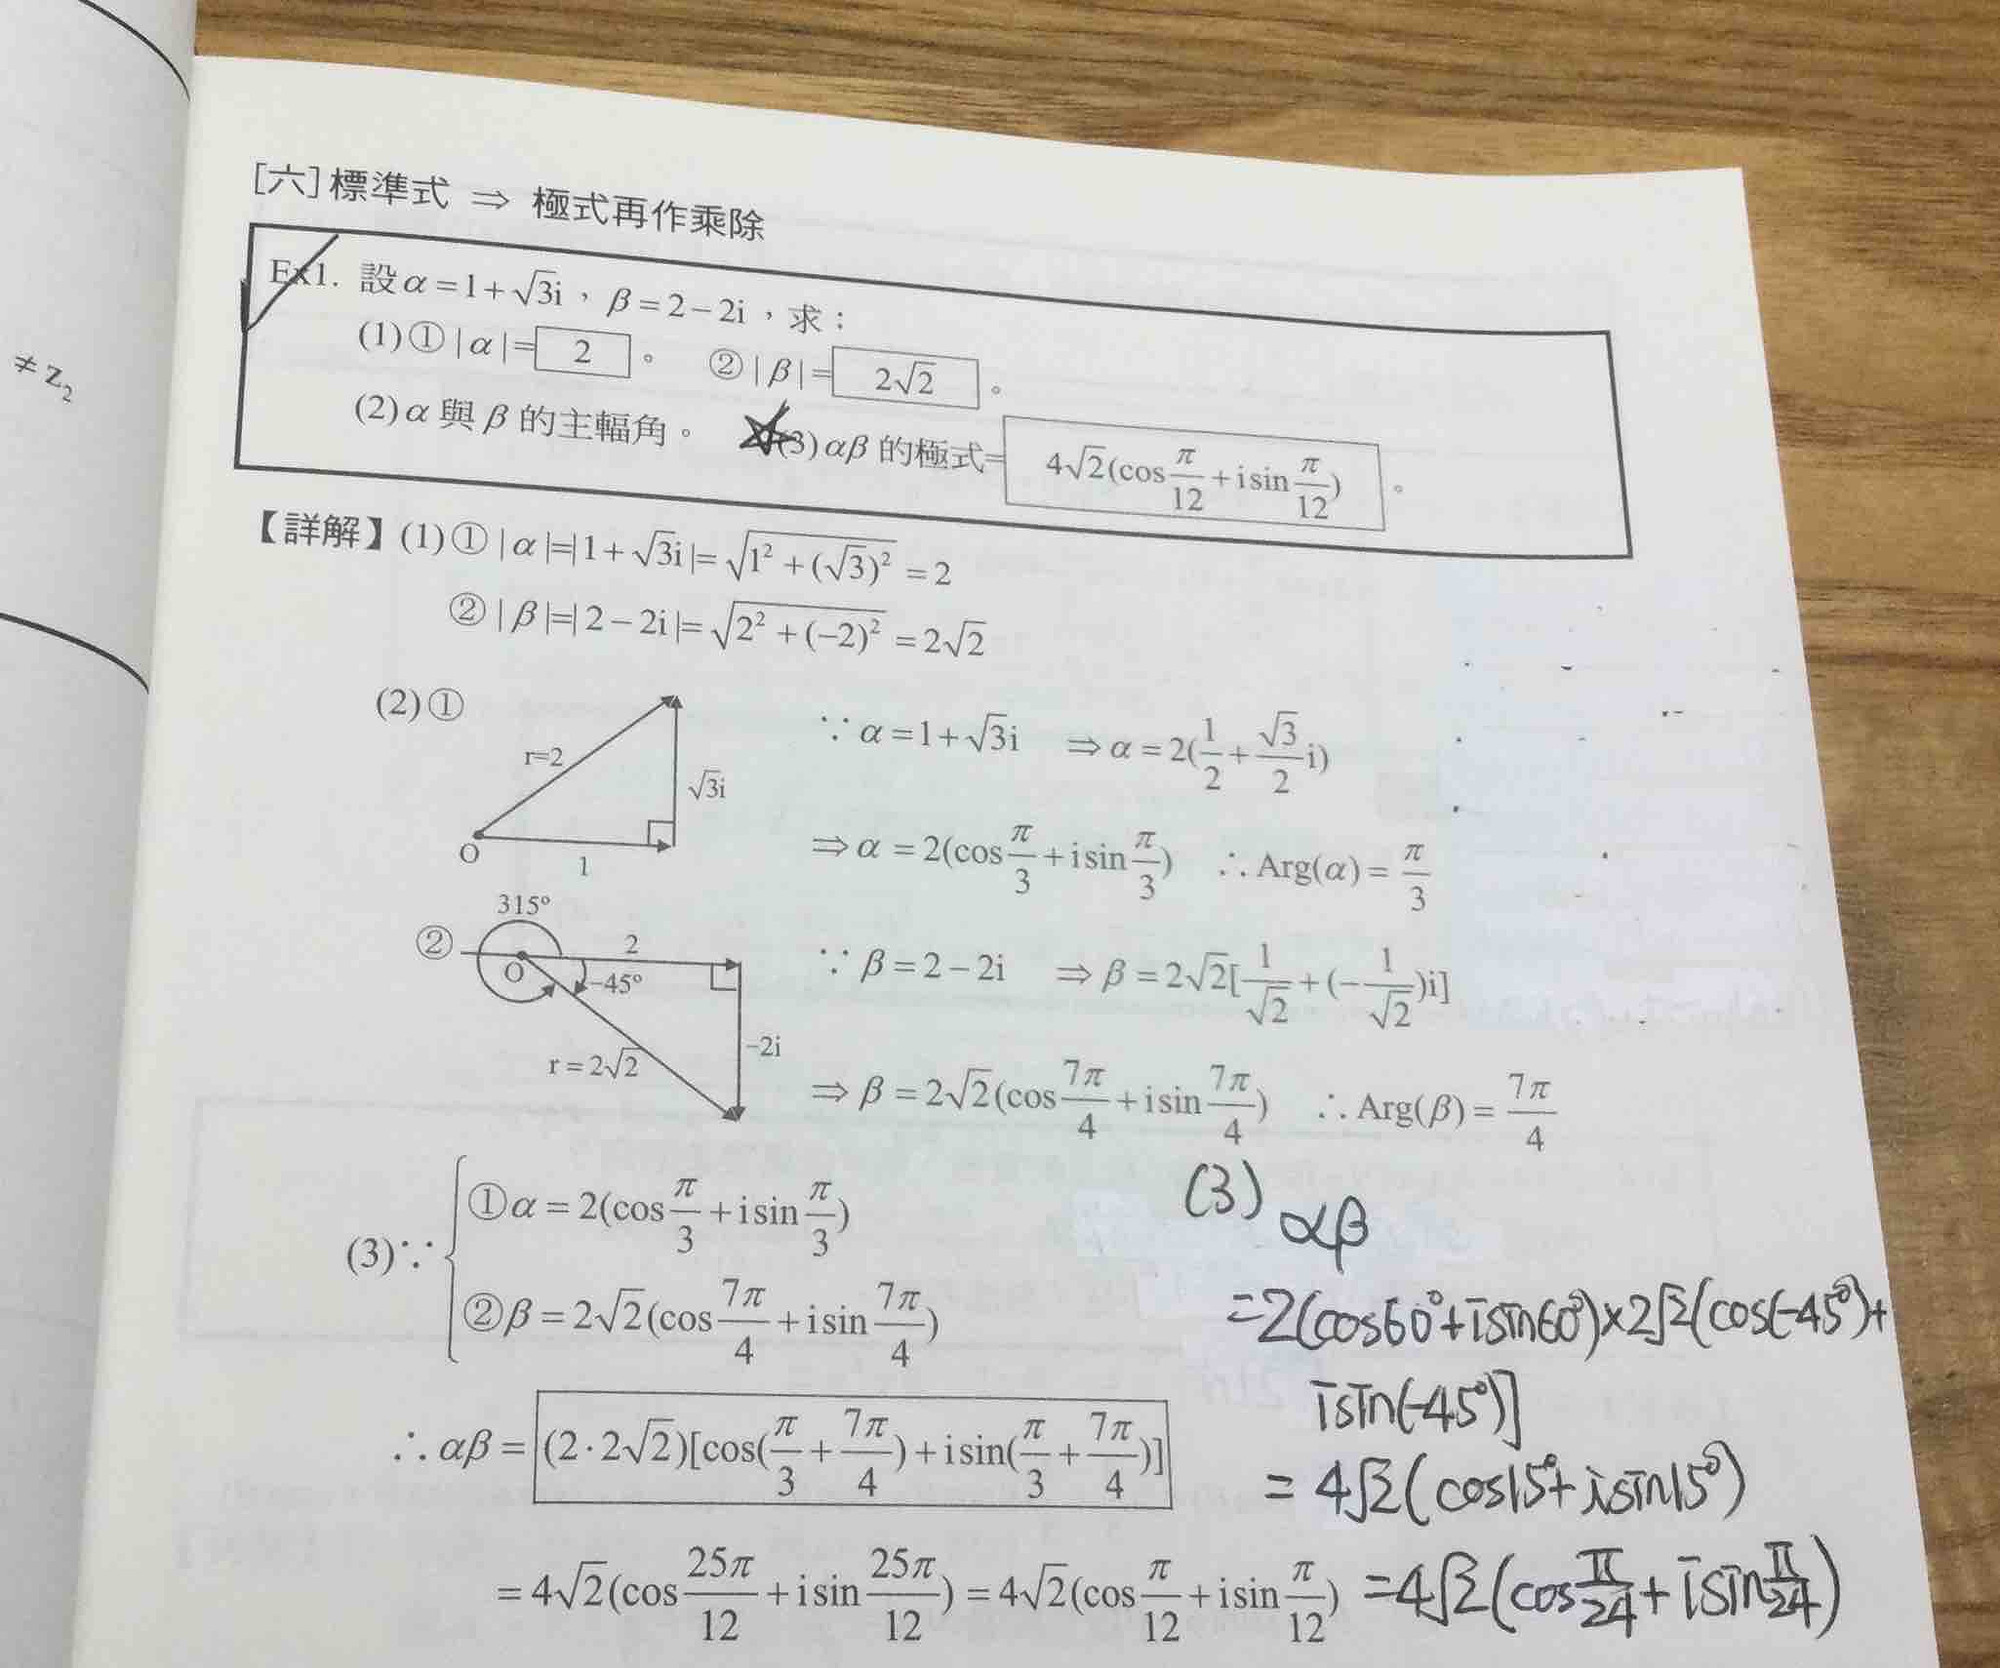 ≠ z₂
[六]標準式 ⇒ 極式再作乘除
Ex1. 設α=1+√3i，β=2−2i，求：
(1)①|α|=2。 ②|β|=2√2。
(2)α與β的主輻角。 (3)αβ的極式=4√2(cos π/12 + i sin π/12)。
【詳解】(1)①|α|=|1+√3i|=√(1²+(√3)²)=2
②|β|=|2−2i|=√(2²+(−2)²)=2√2
(2)① ∵α=1+√3i ⇒α=2(1/2+√3/2 i)
r=2
√3i
O
1
⇒α=2(cos π/3 + i sin π/3) ∴Arg(α)=π/3
315°
② 2 ∵β=2−2i ⇒β=2√2[1/√2+(−1/√2)i]
O −45°
−2i
r=2√2
⇒β=2√2(cos 7π/4 + i sin 7π/4) ∴Arg(β)=7π/4
(3)∵ ①α=2(cos π/3 + i sin π/3)
②β=2√2(cos 7π/4 + i sin 7π/4)
∴αβ=(2·2√2)[cos(π/3+7π/4)+i sin(π/3+7π/4)]
=4√2(cos 25π/12 + i sin 25π/12)=4√2(cos π/12 + i sin π/12)
(3) αβ
=2(cos60°+isin60°)×2√2(cos(-45°)+
isin(-45°)]
=4√2(cos15°+isin15°)
=4√2(cos π/24 + isin π/24)